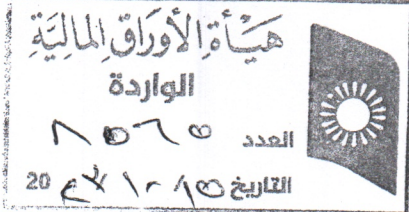 هيأة الأوراق المالية
الواردة
العدد ٨٥٦٥
التاريخ ١٥ / ١٠ / ٢٣ 20